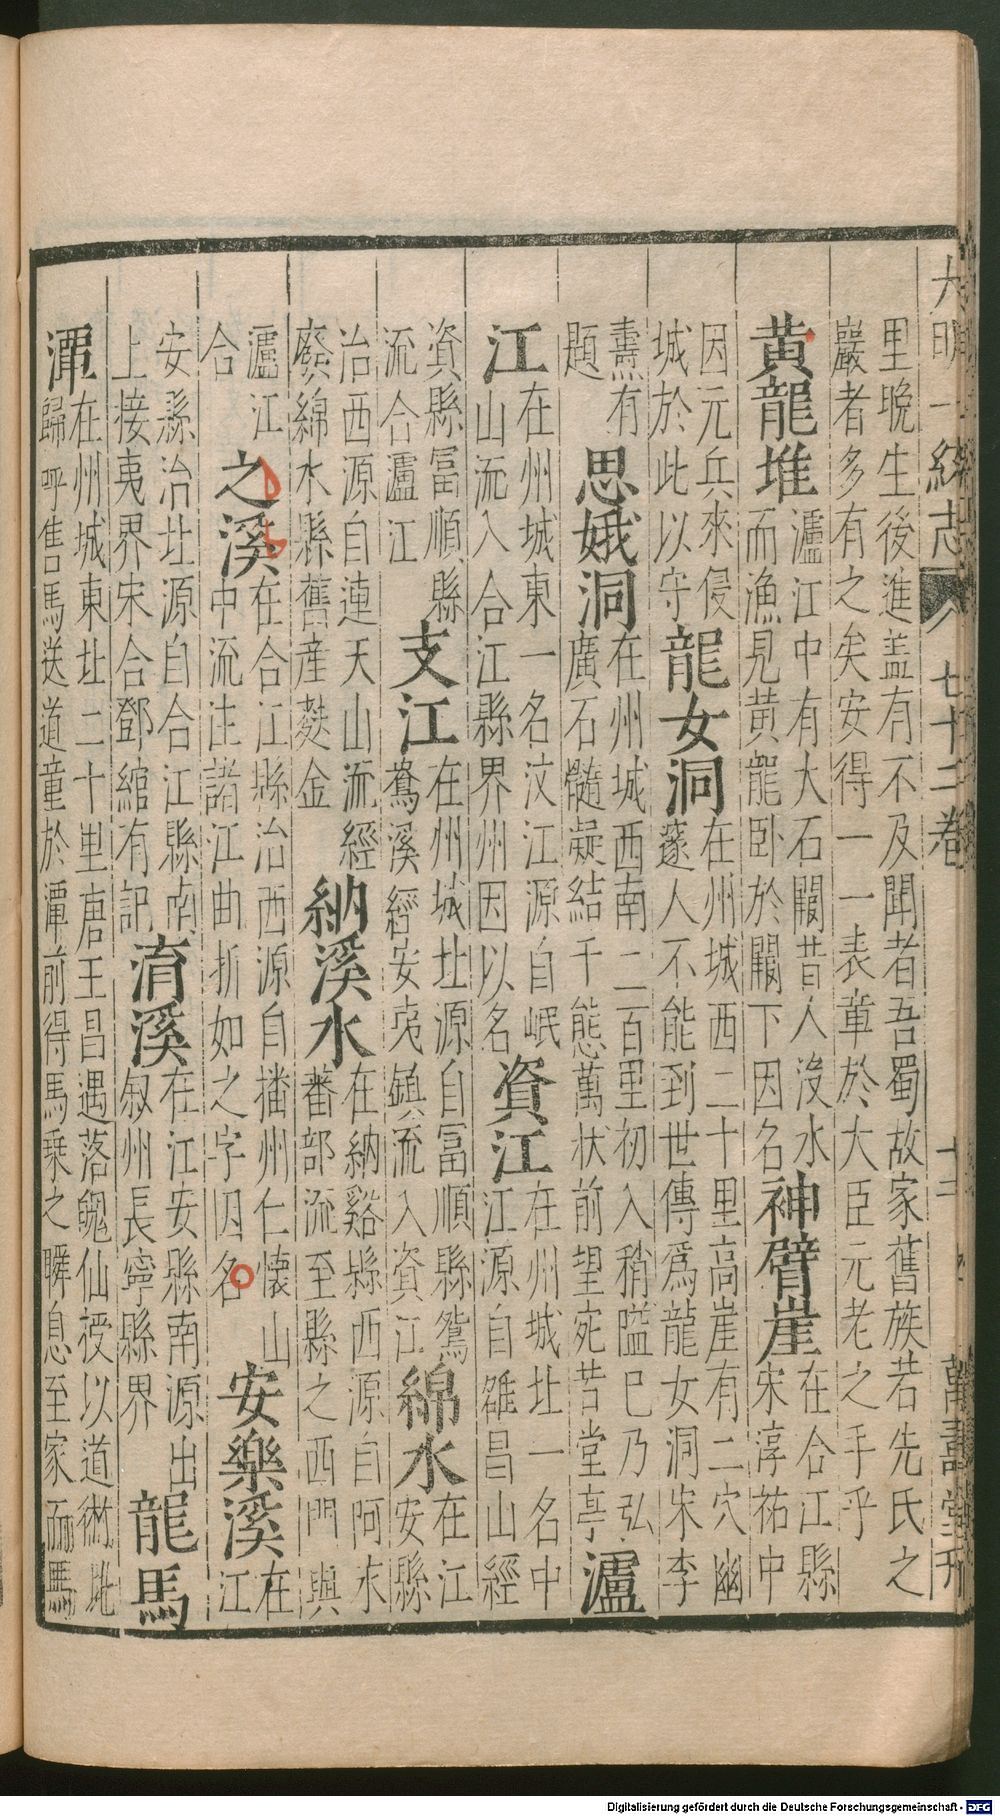 大明一統志 八 七十二卷 十三 萬壽堂刊
里晚生後進盖有不及聞者吾蜀故家舊族若先氏之
嚴者多有之矣安得一一表章於大臣元老之手乎
黃龍堆
瀘江中有大石闞昔人没水
而漁見黃龍卧於闞下因名
神臂崖
在合江縣
宋淳祐中
因元兵來侵
城於此以守
龍女洞
在州城西二十里高崖有二穴幽
邃人不能到世傳爲龍女洞宋李
燾有
題
思娥洞
在州城西南二百里初入稍隘巳乃弘
廣石髓凝結千態萬狀前望宛若堂亭
瀘
江
在州城東一名汶江源自岷
山流入合江縣界州因以名
資江
在州城北一名中
江源自雒昌山經
資縣富順縣
流合瀘江
支江
在州城北源自富順縣鴛
鴦溪經安夷鎮流入資江
綿水
在江
安縣
治西源自連天山流經
廢綿水縣舊産麩金
納溪水
在納谿縣西源自阿永
蕃部流至縣之西門與
瀘江
合
之溪
在合江縣治西源自播州仁懷山
中流注諸江曲折如之字因名
安樂溪
在
江
安縣治北源自合江縣南
上接夷界宋合鄧綰有記
淯溪
在江安縣南源出
叙州長寧縣界
龍馬
潭
在州城東北二十里唐王昌遇落魄仙授以道術此
歸呼售馬送道童於潭前得馬乘之瞬息至家而馬
Digitalisierung gefördert durch die Deutsche Forschungsgemeinschaft - DFG